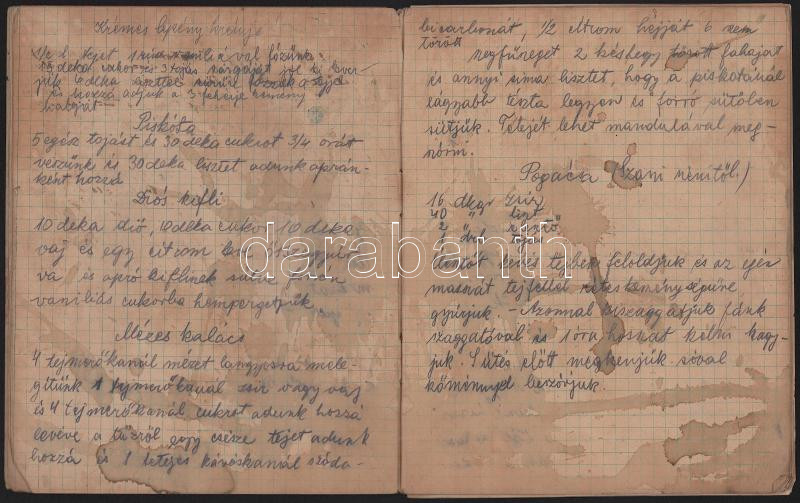 Krémes lepény
1/2 l. tejet 1 rúd vaníliával főzünk
cukorzó 3 tojás sárgáját jól ki kver-
jük 4 deka
és hozzá adjuk a 3 fehérje kemény
habját
Piskóta
5 egész tojást és 30 deka cukrot 3/4 órát
verünk és 30 deka lisztet adunk aprán-
ként hozzá
Diós kifli
10 deka dió, 10 deka cukor 10 deka
vaj és egy citrom leve összegyúr
va és apró kiflinek sütve forrón
vaniliás cukorba hempergetjük
Mézes kalács
4 tejmerőkanál mézet langyossá mele-
gítünk 1 tejmerőkanál zsír vagy vaj
és 4 tejmerőkanál cukrot adunk hozzá
levéve a tűzről egy csésze tejet adunk
hozzá és 1 tetejes kávéskanál szóda-
bicarbonát, 1/2 citrom héjját 6 szem
törött
szegfűszeget 2 késhegy törött fahajat
és annyi sima lisztet, hogy a piskótánál
lágyabb tészta legyen és forró sütőben
sütjük. Tetejét lehet mandulával meg-
szórni.
Pogácsa (Szani nénitől.)
16 dkgr zsír
40 " liszt
2 " élesztő
1 drb tojás
kevés tejben feloldjuk és az egész
masszát tejföllel rétes keménységűre
gyúrjuk. - Azonnal kiszaggatjuk fánk
szaggatóval és 1 óra hosszat kelni hagy-
juk. Sütés előtt megkenjük sóval
köménnyel beszórjuk.
darabanth